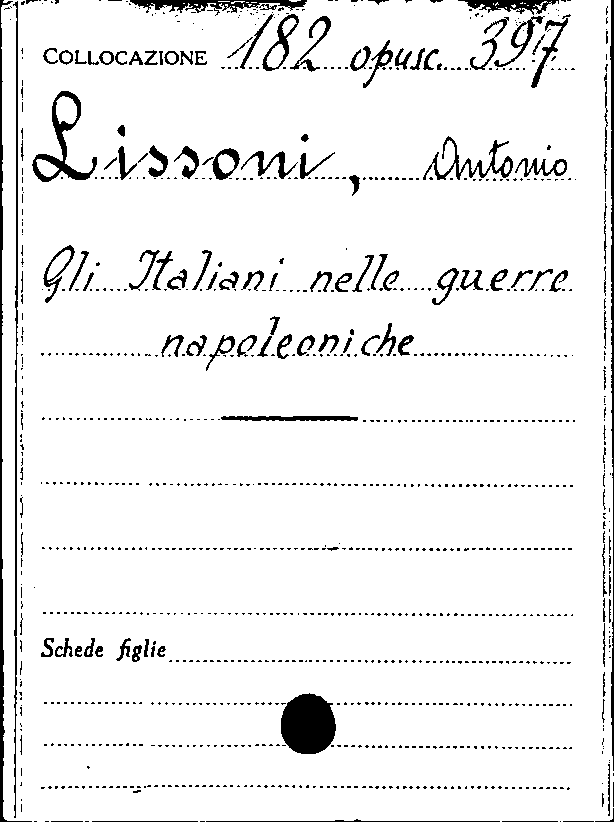 COLLOCAZIONE 182 opusc. 397
Lissoni, Antonio
Gli Italiani nelle guerre
napoleoniche
Schede figlie